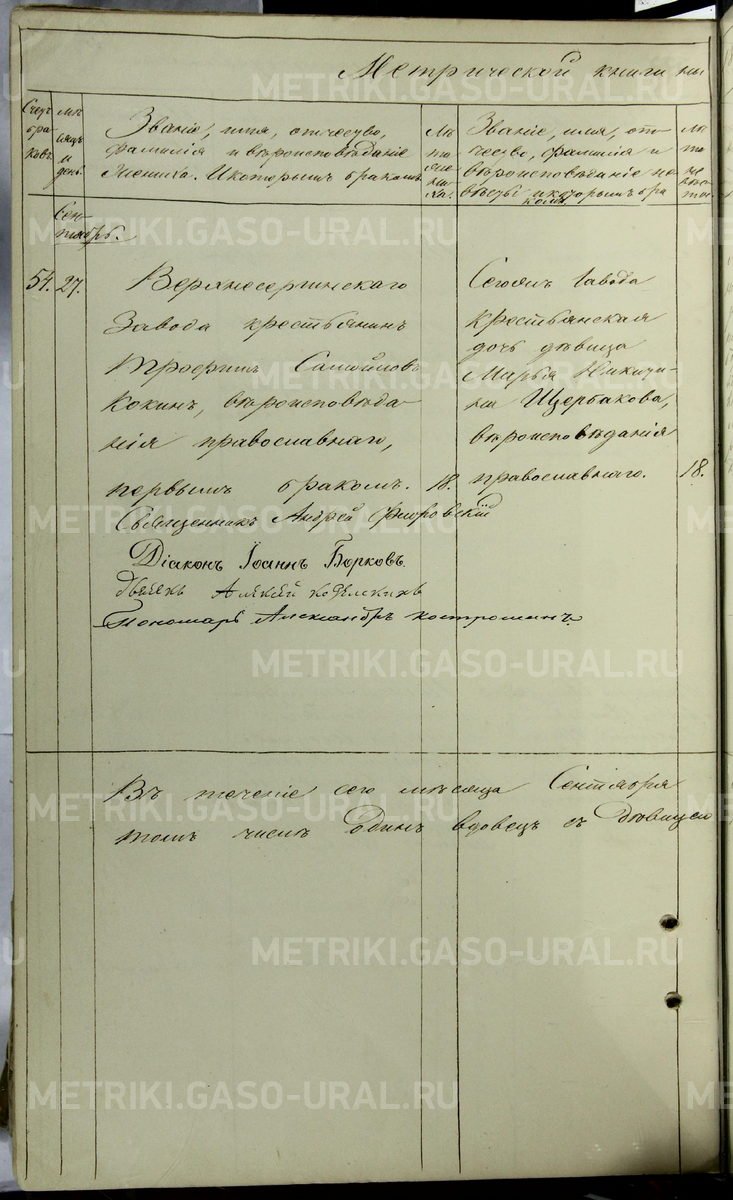 Метрической книги
Счетъ бра- ковъ.
мѣ- сяцъ и день.
Званіе, имя, отчество,
фамилія и вѣроисповѣданіе
жениха. И которымъ бракомъ.
Лѣ- та же- ни- ха.
Званіе, имя, от-
чество, фамилія и
вѣроисповѣданіе не-
вѣсты и которымъ бра
комъ.
Лѣ- та не- вѣс- ты.
Сен-
тябрь.
54. 27.
Верхнесергинскаго
Завода крестьянинъ
Трофимъ Самойловъ
Кокинъ, вѣроисповѣда-
нія православнаго,
первымъ бракомъ. 18.
Сегожъ Завода
крестьянская
дочь дѣвица
Марья Никити-
на Щербакова,
вѣроисповѣданія
православнаго. 18.
Священникъ Андрей Флоровскій
Діаконъ Іоаннъ Борковъ.
Дьячекъ
Пономарь Александръ Костроминъ.
Въ теченіе сего мѣсяца Сентября
томъ числѣ Одинъ вдовецъ съ дѣвицею
METRIKI.GASO-URAL.RU